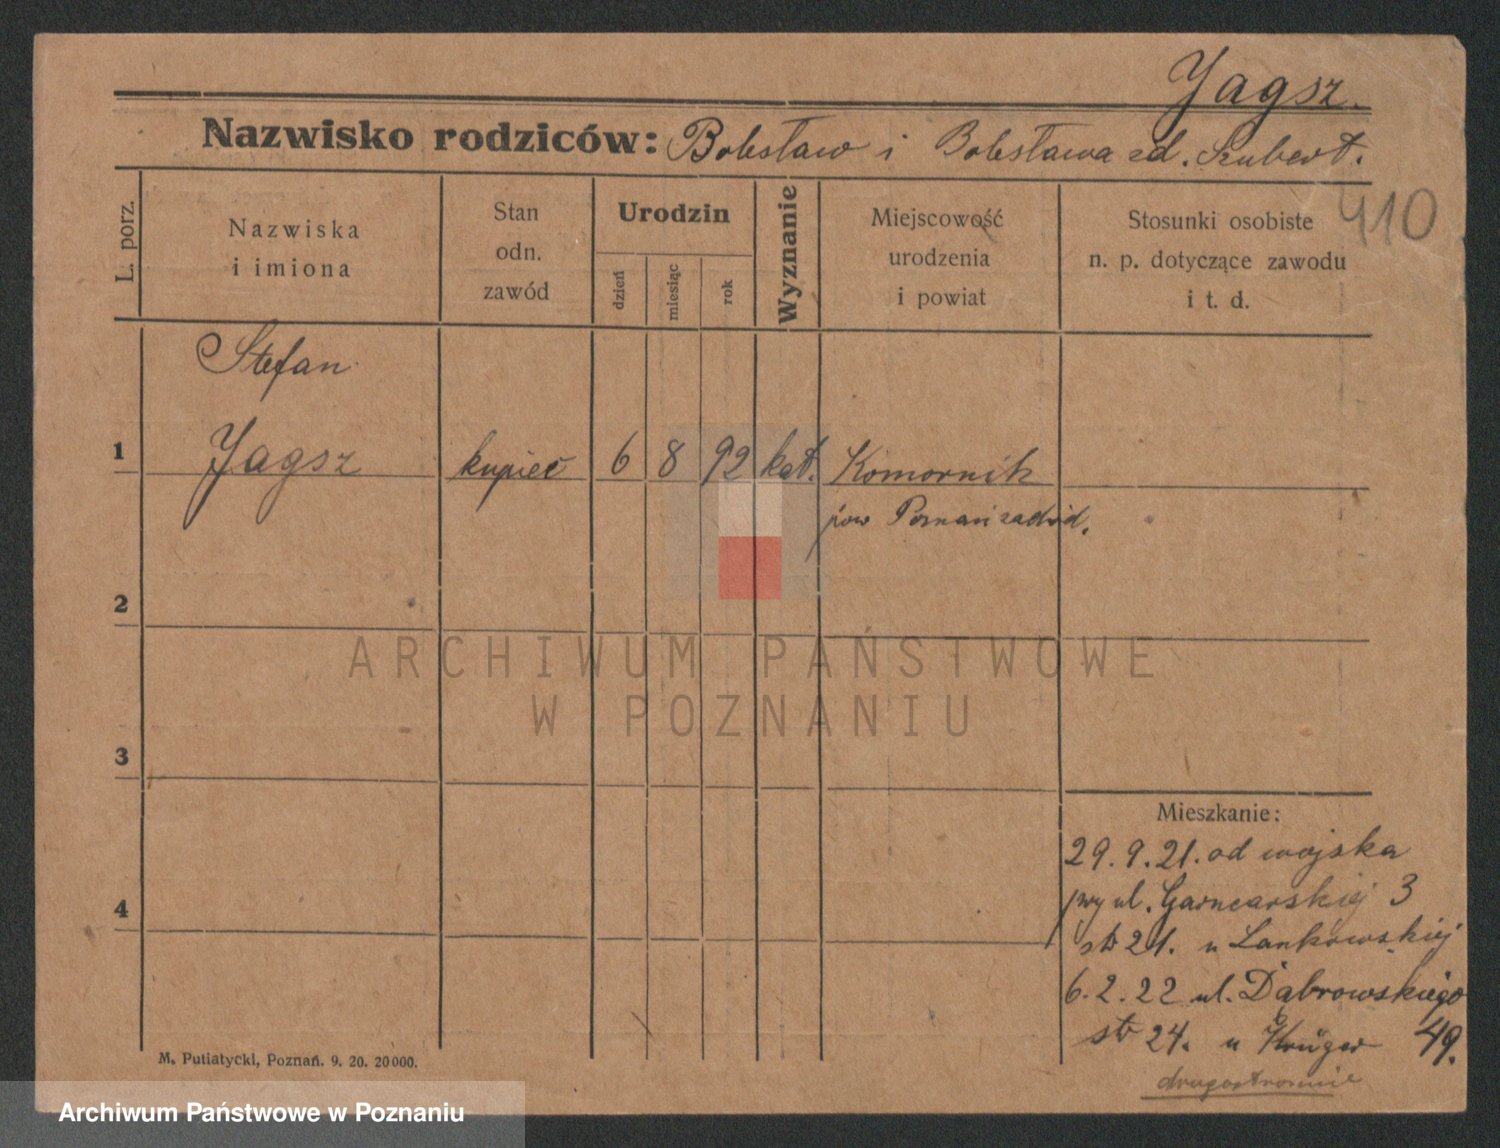 Jagsz.
Nazwisko rodziców: Bolesław i Bolesława zd. Szubert.
410
L. porz.
Nazwiska
i imiona
Stan
odn.
zawód
Urodzin
dzień
miesiąc
rok
Wyznanie
Miejscowość
urodzenia
i powiat
Stosunki osobiste
n. p. dotyczące zawodu
i t. d.
Stefan
1 Jagsz kupiec 6 8 92 kat. Komornik
pow Poznań zachód.
2
3
4
Mieszkanie:
29.9.21. od wojska
przy ul. Garncarskiej 3
str 21. u Lankowskiej
6.2.22 ul. Dąbrowskiego
str 24. u Krüger 49.
drugostronnie
M. Putiatycki, Poznań. 9. 20. 20000.
ARCHIWUM PAŃSTWOWE
W POZNANIU
Archiwum Państwowe w Poznaniu